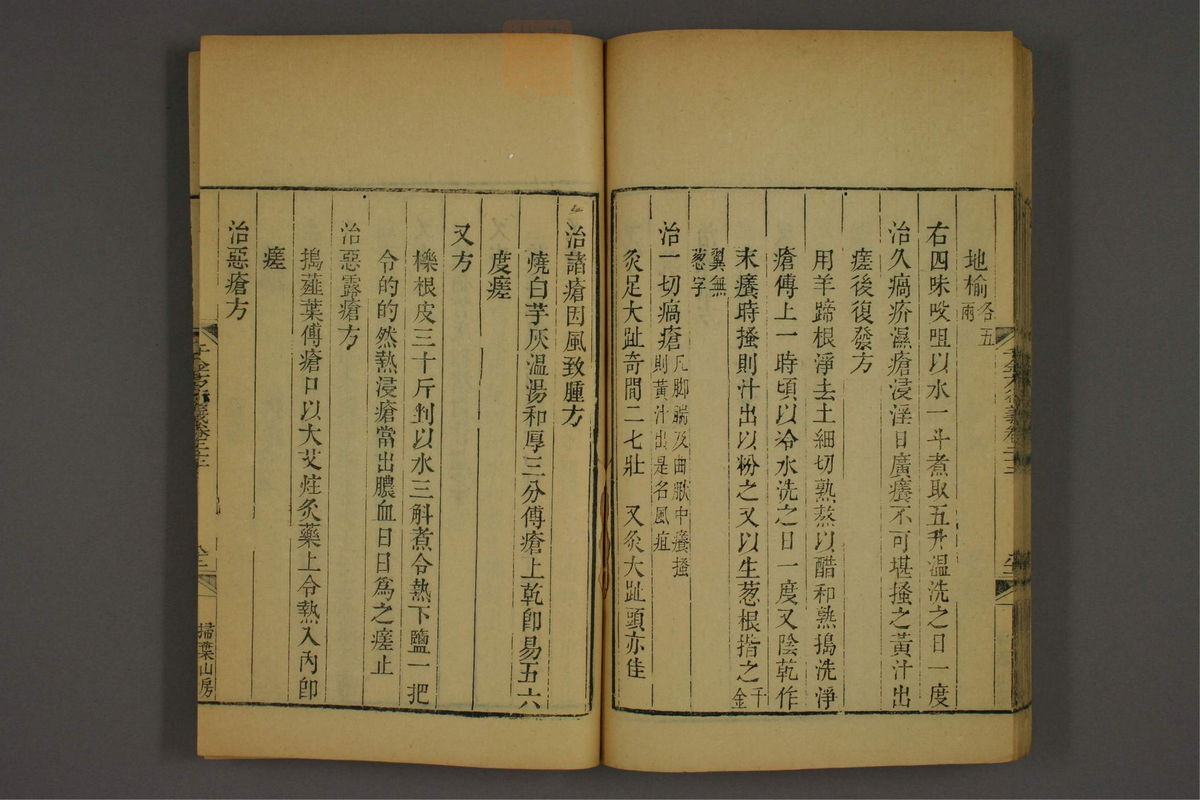 地榆各五兩
右四味㕮咀以水一斗煮取五升溫洗之日一度
治久瘑疥濕瘡浸淫日廣癢不可堪搔之黃汁出
瘥後復發方
用羊蹄根淨去土細切熟熬以醋和熟搗洗淨
瘡傅上一時頃以冷水洗之日一度又陰乾作
末癢時搔則汁出以粉之又以生葱根指之千金
翼無葱字
治一切瘑瘡凡脚腨及曲䐐中癢搔則黃汁出是名風疽
灸足大趾奇間二七壯 又灸大趾頭亦佳
治諸瘡因風致腫方
燒白芋灰溫湯和厚三分傅瘡上乾卽易五六
度瘥
又方
櫟根皮三十斤剉以水三斛煮令熱下鹽一把
令的的然熱浸瘡當出膿血日日爲之瘥止
治惡露瘡方
搗薤葉傅瘡口以大艾炷灸藥上令熱入內卽
瘥
治惡瘡方
千金方衍義卷二十二
掃葉山房